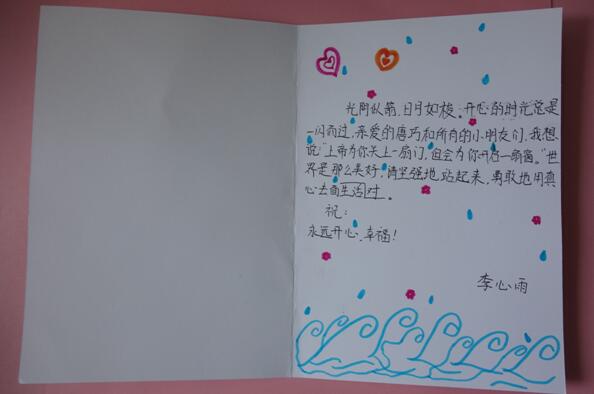 光阴似箭,日月如梭。开心的时光总是
一闪而过,亲爱的唐巧和所有的小朋友们,我想
说“上帝为你关上一扇门,但会为你开启一扇窗。”世
界是那么美好,请坚强地站起来,勇敢地用真
心去面生活对。
祝:
永远开心、幸福!
李心雨